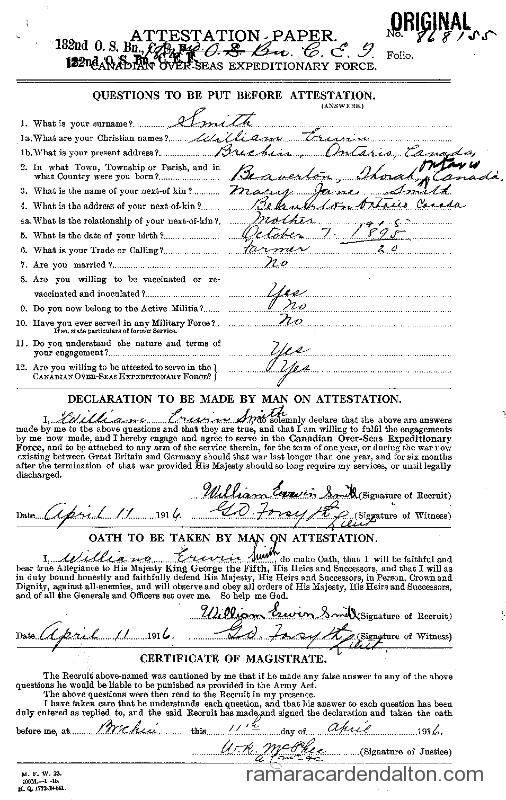 ATTESTATION PAPER.
ORIGINAL
No. 868155
132nd O. S. Bn., C. E. F.
O.S. Bn. C. E. F.
Folio.
CANADIAN OVER-SEAS EXPEDITIONARY FORCE.
QUESTIONS TO BE PUT BEFORE ATTESTATION.
(ANSWERS)
1. What is your surname? Smith
1a. What are your Christian names? William Erwin
1b. What is your present address? Brechin, Ontario, Canada
2. In what Town, Township or Parish, and in what Country were you born? Beaverton, Thorah, Ontario Canada,
3. What is the name of your next-of kin? Mary Jane Smith
4. What is the address of your next-of-kin? Beaverton Ontario Canada
4a. What is the relationship of your next-of-kin? Mother
5. What is the date of your birth? October 7. 1895
6. What is your Trade or Calling? Farmer 20
7. Are you married? No
8. Are you willing to be vaccinated or re-
vaccinated and inoculated? Yes
9. Do you now belong to the Active Militia? No
10. Have you ever served in any Military Force? No
If so, state particulars of former Service.
11. Do you understand the nature and terms of
your engagement? Yes
12. Are you willing to be attested to serve in the
CANADIAN OVER-SEAS EXPEDITIONARY FORCE? Yes
DECLARATION TO BE MADE BY MAN ON ATTESTATION.
I, William Erwin Smith do solemnly declare that the above are answers
made by me to the above questions and that they are true, and that I am willing to fulfil the engagements
by me now made, and I hereby engage and agree to serve in the Canadian Over-Seas Expeditionary
Force, and to be attached to any arm of the service therein, for the term of one year, or during the war now
existing between Great Britain and Germany should that war last longer than one year, and for six months
after the termination of that war provided His Majesty should so long require my services, or until legally
discharged.
William Erwin Smith (Signature of Recruit)
Date April 11 1916 Forsyth Lieut (Signature of Witness)
OATH TO BE TAKEN BY MAN ON ATTESTATION.
I, William Erwin Smith do make Oath, that I will be faithful and
bear true Allegiance to His Majesty King George the Fifth, His Heirs and Successors, and that I will as
in duty bound honestly and faithfully defend His Majesty, His Heirs and Successors, in Person, Crown and
Dignity, against all enemies, and will observe and obey all orders of His Majesty, His Heirs and Successors,
and of all the Generals and Officers set over me. So help me God.
William Erwin Smith (Signature of Recruit)
Date April 11 1916 Forsyth Lieut (Signature of Witness)
CERTIFICATE OF MAGISTRATE.
The Recruit above-named was cautioned by me that if he made any false answer to any of the above
questions he would be liable to be punished as provided in the Army Act.
The above questions were then read to the Recruit in my presence.
I have taken care that he understands each question, and that his answer to each question has been
duly entered as replied to, and the said Recruit has made and signed the declaration and taken the oath
before me, at Brechin this 11th day of April 1916.
McPhee (Signature of Justice)
M. F. W. 23.
ramaracardendalton.com